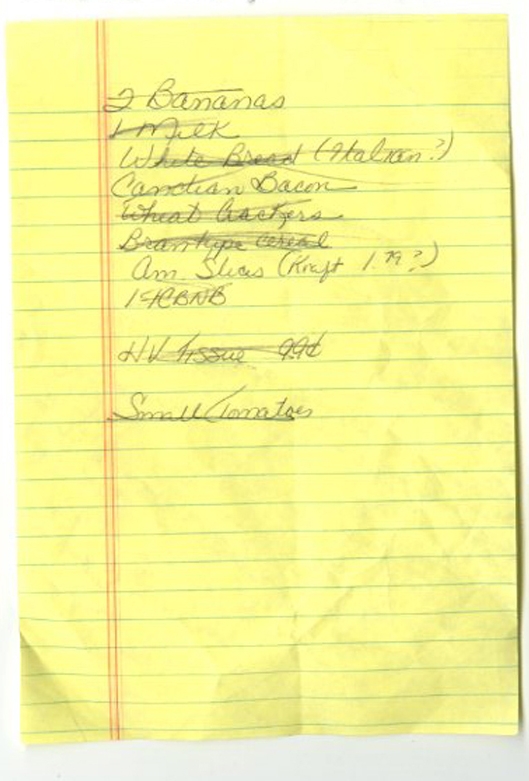 2 Bananas
1 Milk
White Bread (Italian?)
Candian Bacon
Wheat Crackers
Brantype cereal
Am. Slices (Kraft 1.79?)
HV tissue 99¢
Small Tomatoes